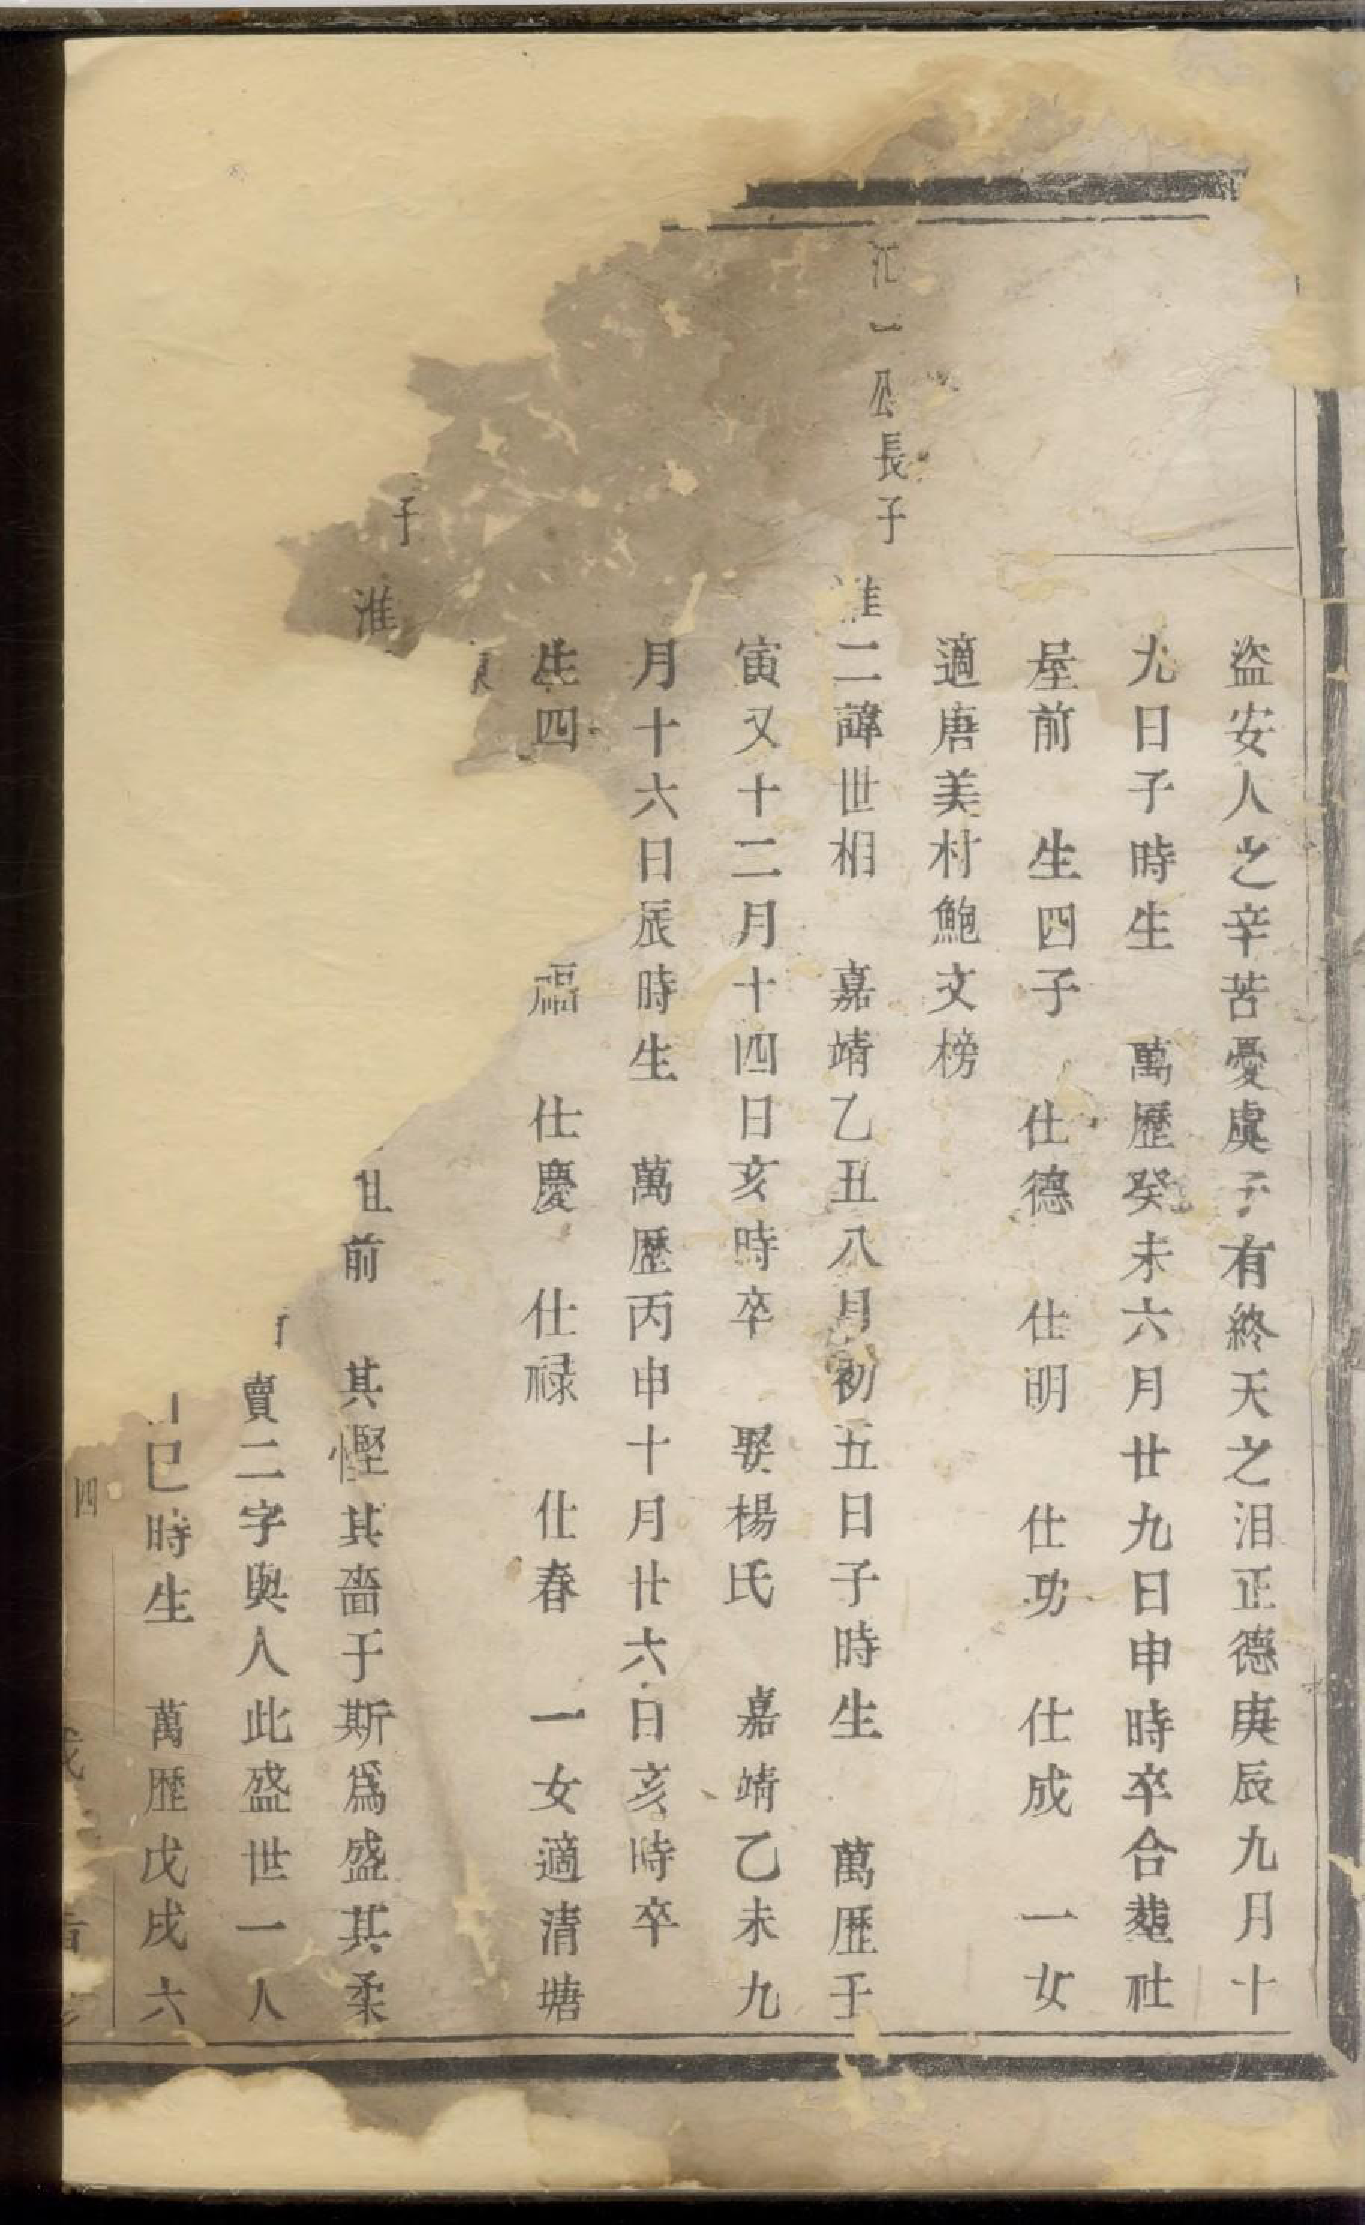 盜安人之辛苦憂虞子有終天之泪正德庚辰九月十
九日子時生　萬歷癸未六月廿九日申時卒合塟社
屋前　生四子　仕德　仕明　仕功　仕成　一女
適唐美村鮑文榜
汇一公長子　淮二諱世相　嘉靖乙丑八月初五日子時生　萬歷壬
寅又十二月十四日亥時卒　娶楊氏　嘉靖乙未九
月十六日辰時生　萬歷丙申十月廿六日亥時卒
生四　福　仕慶　仕禄　仕春　一女適清塘
子　淮
前　其慳其嗇于斯爲盛其柔
賣二字與人此盛世一人
巳時生　萬歷戊戌六
四